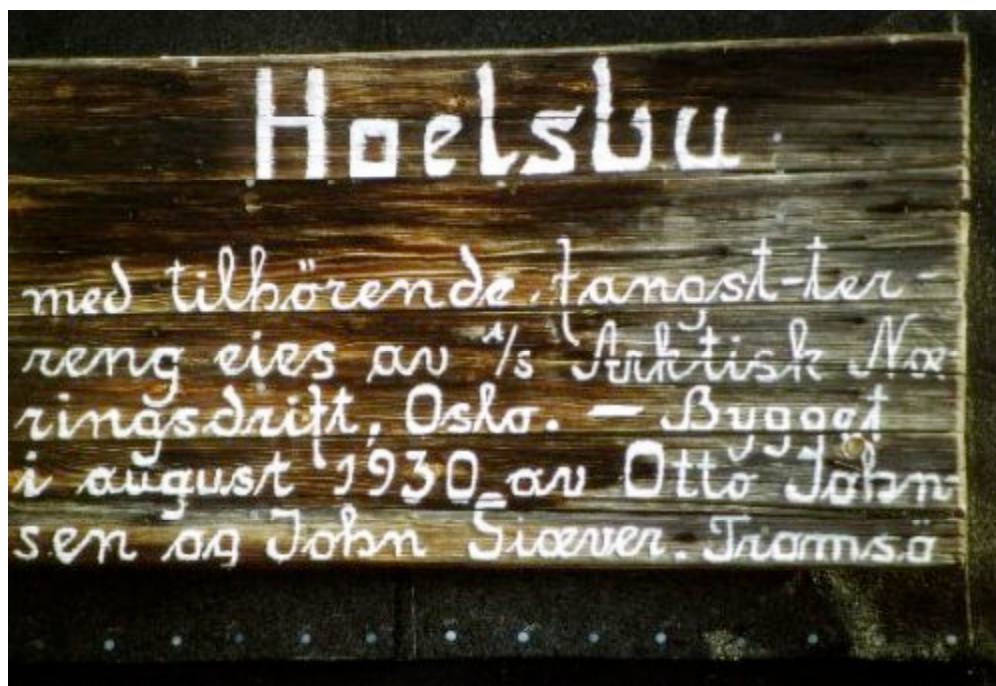 Hoelsbu.
med tilhörende fangst-ter-
reng eies av A/S Arktisk Næ-
ringsdrift, Oslo. — Bygget
i august 1930 av Otto John-
sen og John Giæver. Tromsö